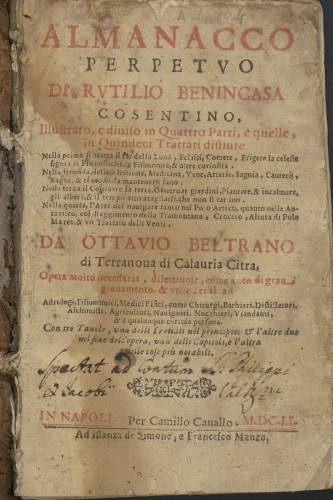 ALMANACCO
PERPETVO
DI RVTILIO BENINCASA
COSENTINO,
Illustrato, e diuiso in Quattro Parti, e quelle,
in Quindeci Trattati distinte
Nella prima si tratta della Luna, Eclissi, Comete, Erigere la celeste
figura, li Pronostichi, la Fisonomia, & altre curiosità.
Nella seconda, della Medicina, Vene, Arterie, Sagnia, Cauterij,
Bagni, & il modo di mantenersi sano.
Nella terza il Coltiuare la terra, Gouernar giardini, Piantare, & incalmare,
gli alberi, & il tempo
Nella quarta, l'Arte del nauigare nel Polo Artico, quanto nello An-
tartico, col Reggimento della Tramontana, Crociero, Altura di Polo
Maree, & vn Trattato delli Venti.
DA OTTAVIO BELTRANO
di Terranoua di Calauria Citra,
Opera molto necessaria, diletteuole, come anco di gran
giouamento, & vtile, a
Astrologi, Fisonomici, Medici Fisici, come Chirurgi, Barbieri, Distillatori,
Alchimisti, Agricultori, Nauiganti, Nocchieri, Viandanti,
& à qualunque curiosa persona.
Con tre Tauole, vna delli Trattati nel principio, & l'altre due
nel fine dell'opera, vna delli Capitoli, e l'altra
delle cose più notabili.
Spectat ad
et Jacobi
IN NAPOLI Per Camillo Cauallo. M.DC.LI.
Ad istanza di Simone, e Francesco Manzo.